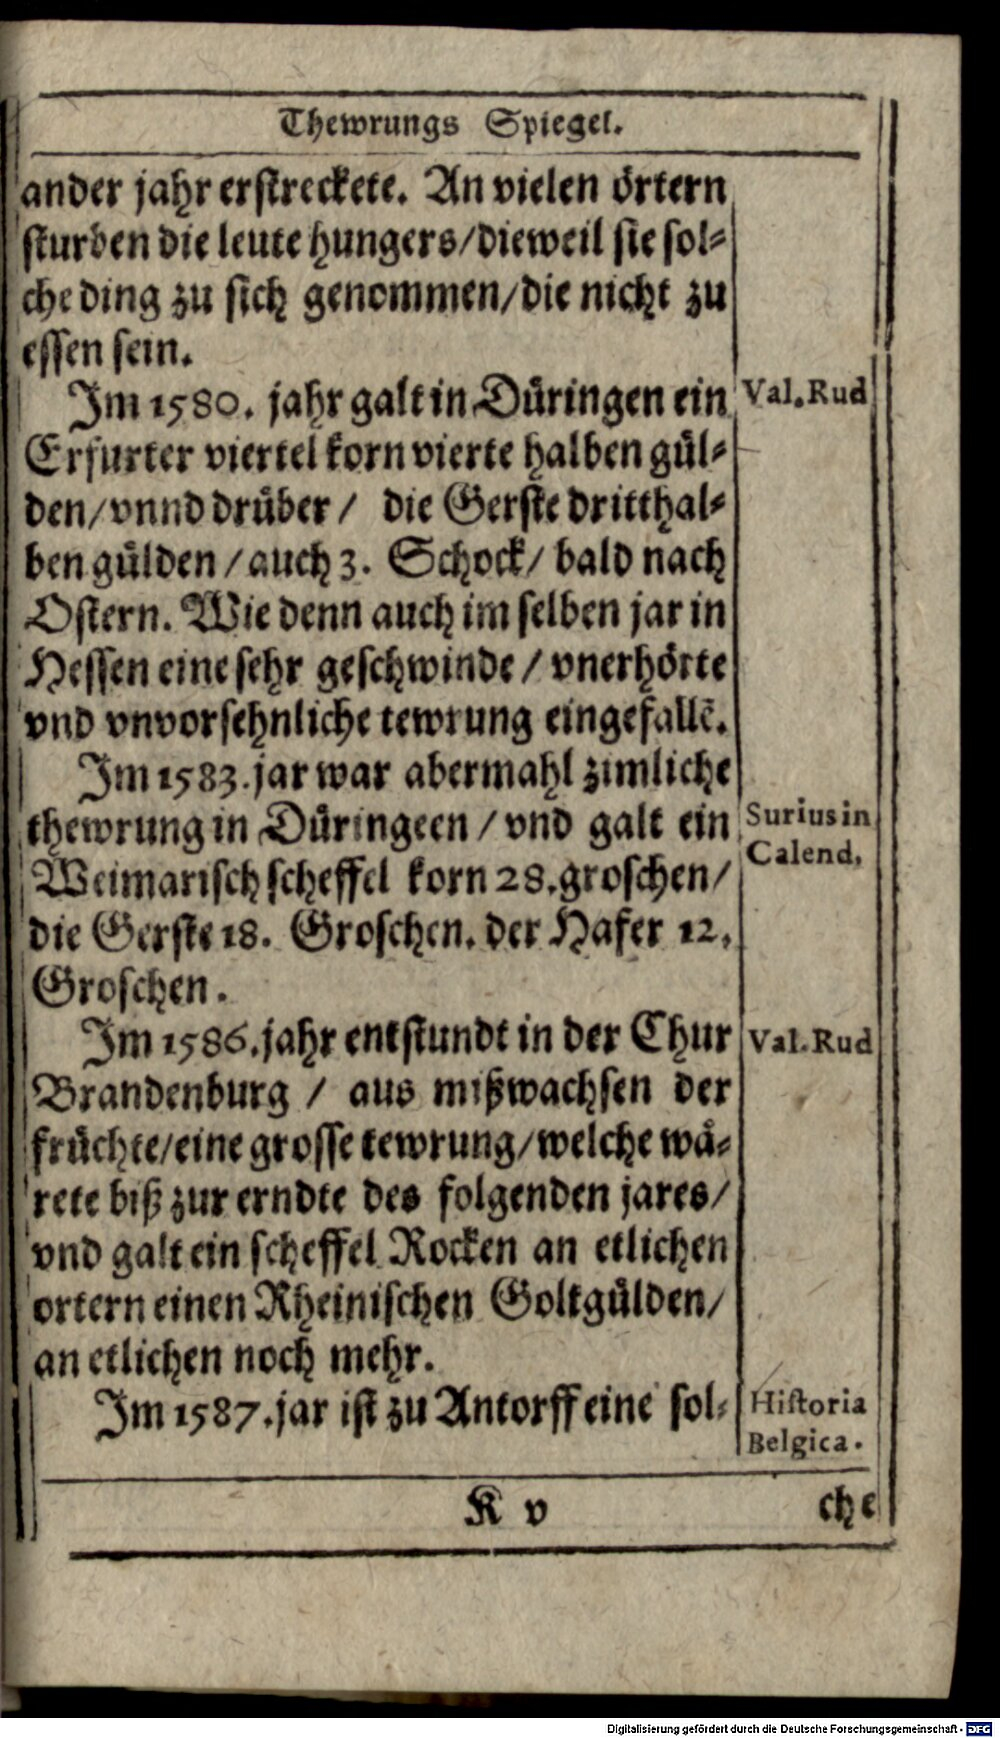 Thewrungs Spiegel.
ander jahr erstreckete. An vielen örtern
sturben die leute hungers/dieweil sie sol⸗
che ding zu sich genommen/die nicht zu
essen sein.
Im 1580. jahr galt in Düringen ein
Val. Rud
Erfurter viertel korn vierte halben gül⸗
den/vnnd drüber / die Gerste dritthal⸗
ben gülden /auch 3. Schock/ bald nach
Ostern. Wie denn auch im selben jar in
Hessen eine sehr geschwinde / vnerhörte
vnd vnvorsehnliche tewrung eingefallē.
Im 1583. jar war abermahl zimliche
thewrung in Düringeen /vnd galt ein
Surius in
Calend.
Weimarisch scheffel korn 28. groschen/
die Gerste 18. Groschen. der Hafer 12.
Groschen.
Im 1586. jahr entstundt in der Chur
Val. Rud
Brandenburg / aus mißwachsen der
früchte/eine grosse tewrung/welche wä⸗
rete biß zur erndte des folgenden jares/
vnd galt ein scheffel Rocken an etlichen
ortern einen Rheinischen Goltgülden/
an etlichen noch mehr.
Im 1587. jar ist zu Antorff eine sol⸗
Historia
Belgica.
K v
che
Digitalisierung gefördert durch die Deutsche Forschungsgemeinschaft - DFG